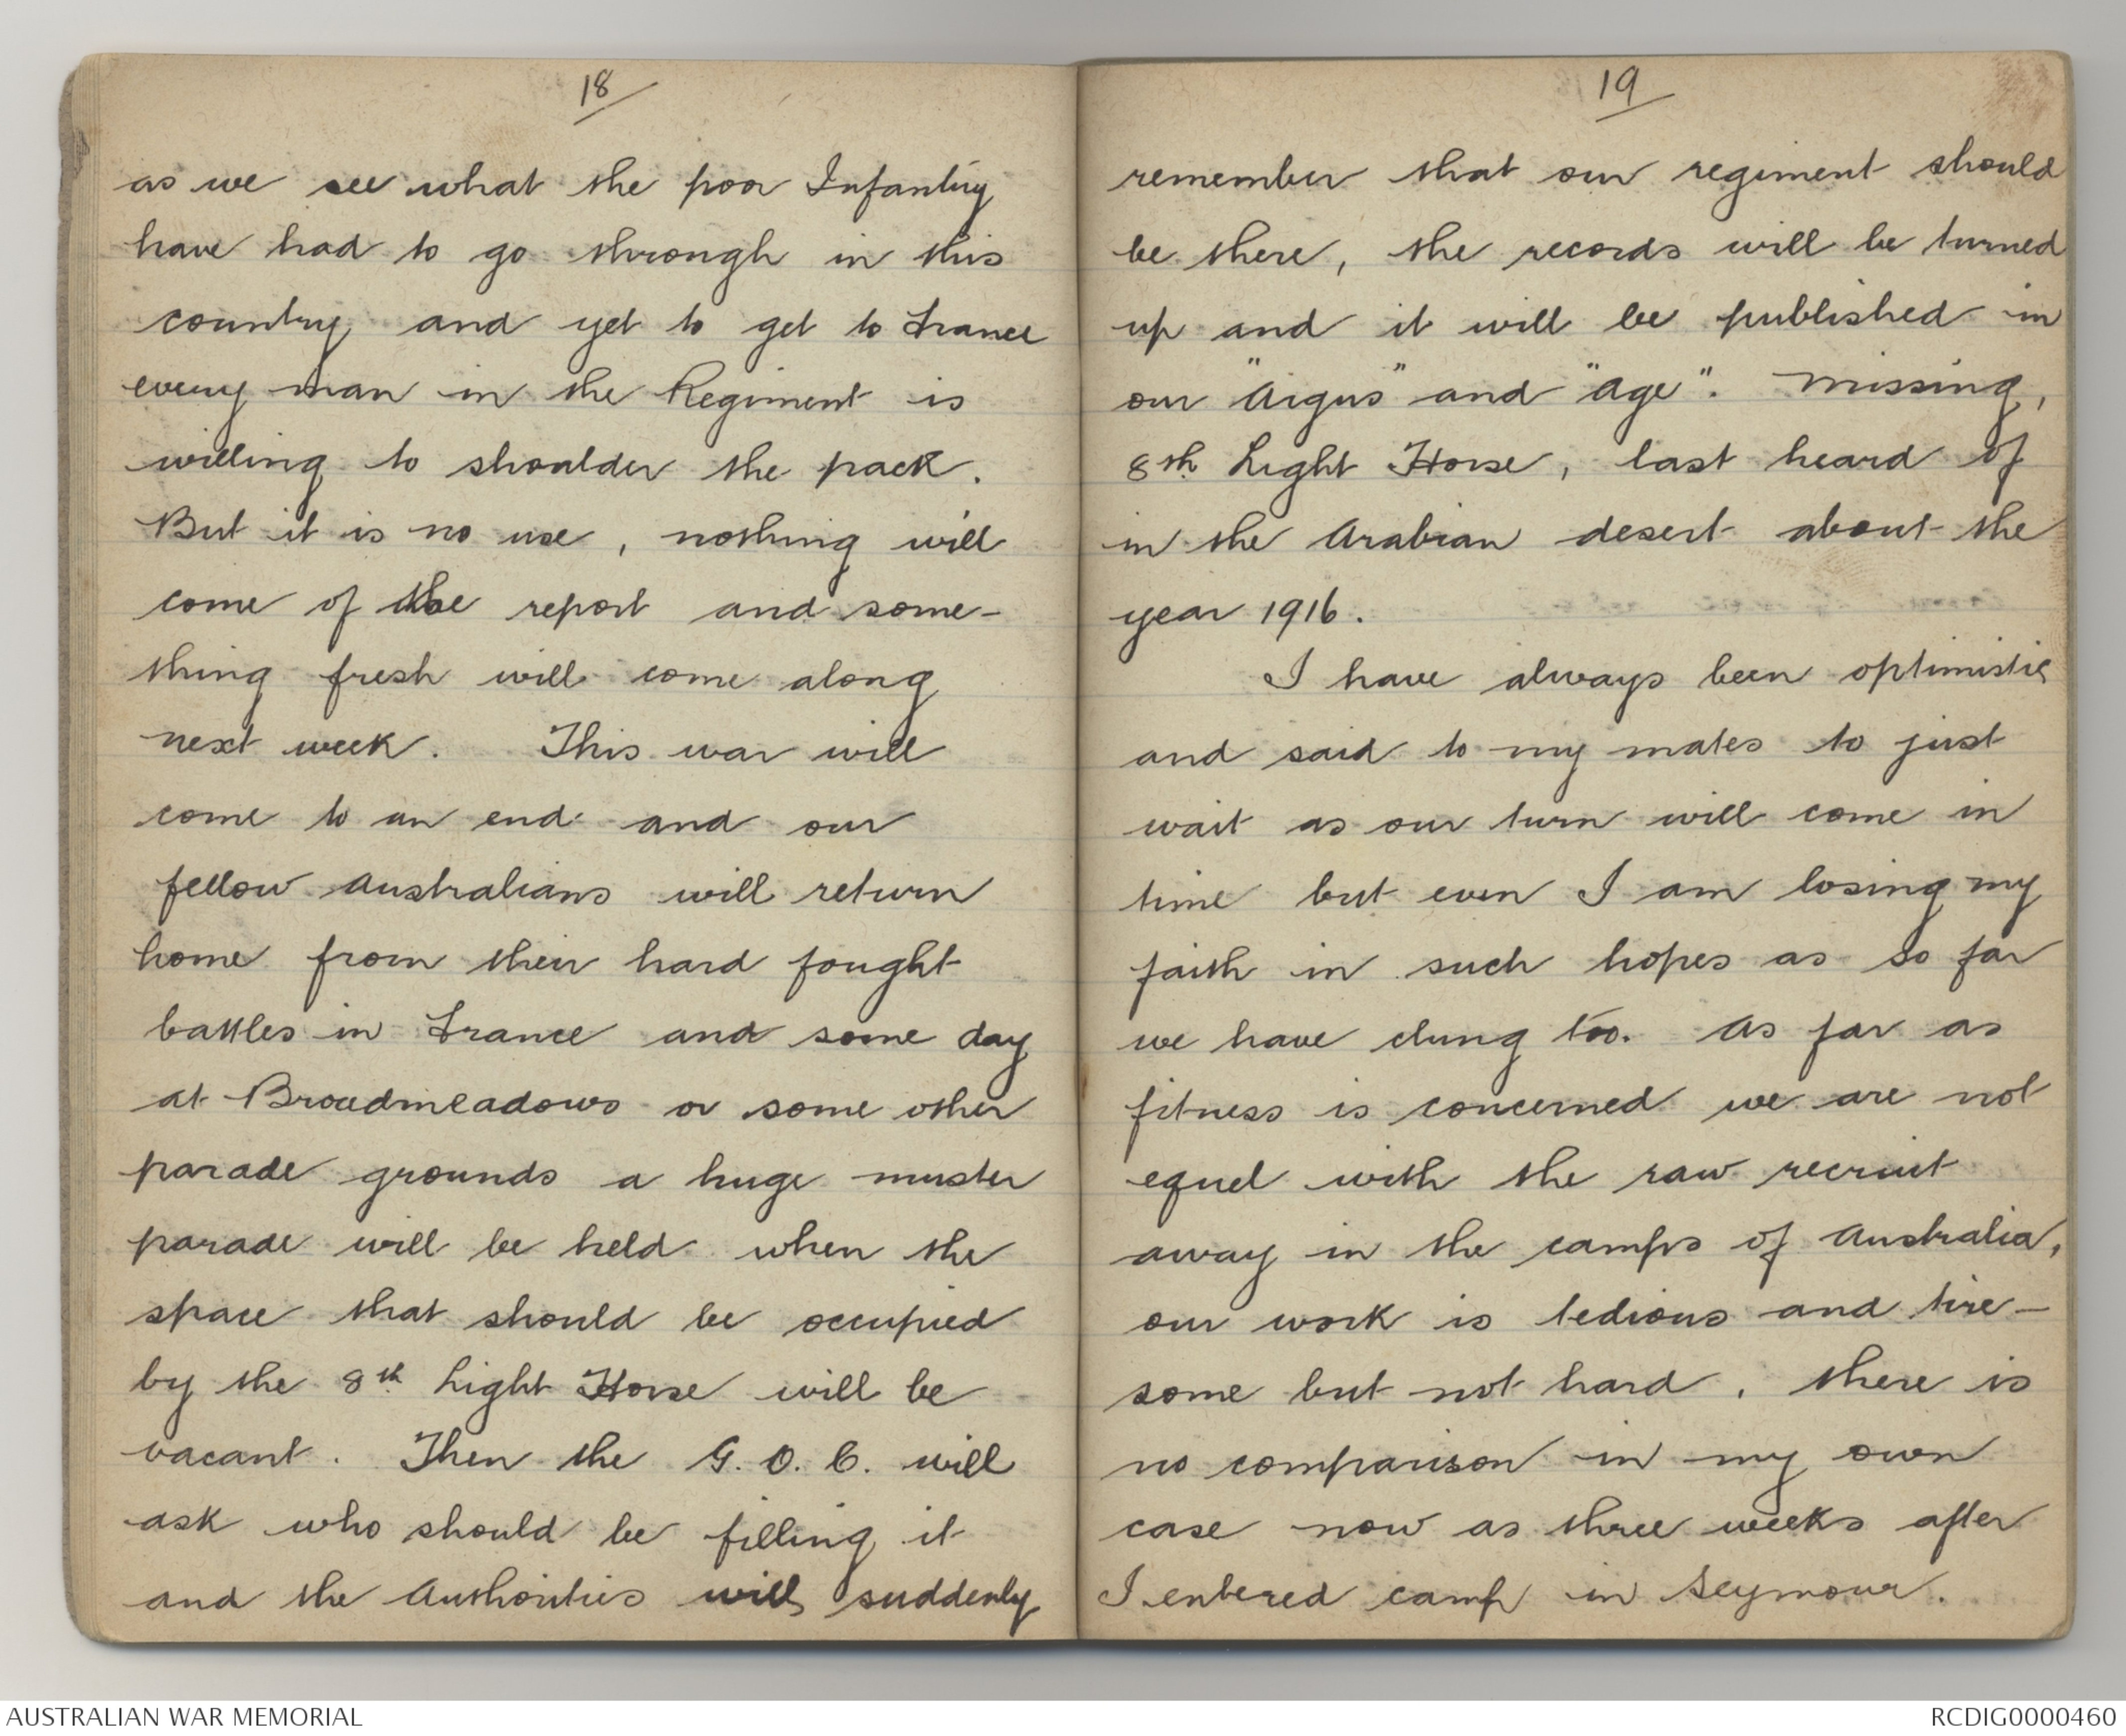 18
as we see what the poor Infantry
have had to go through in this
country and yet to get to France
every man in the Regiment is
willing to shoulder the pack.
But it is no use, nothing will
come of the report and some-
thing fresh will come along
next week. This war will
come to an end and our
fellow Australians will return
home from their hard fought
battles in France and some day
at Broadmeadows or some other
parade grounds a huge muster
parade will be held when the
space that should be occupied
by the 8th Light Horse will be
vacant. Then the G.O.C. will
ask who should be filling it
and the Authorities will suddenly
19
remember that our regiment should
be there, the records will be turned
up and it will be published in
our "Argus" and "Age". Missing,
8th Light Horse, last heard of
in the Arabian desert about the
year 1916.
I have always been optimistic
and said to my mates to just
wait as our turn will come in
time but even I am losing my
faith in such hopes as so far
we have clung too. As far as
fitness is concerned we are not
equel with the raw recruit
away in the camps of Australia,
our work is tedious and tire-
some but not hard. there is
no comparison in my own
case now as three weeks after
I entered camp in Seymour.
AUSTRALIAN WAR MEMORIAL
RCDIG0000460